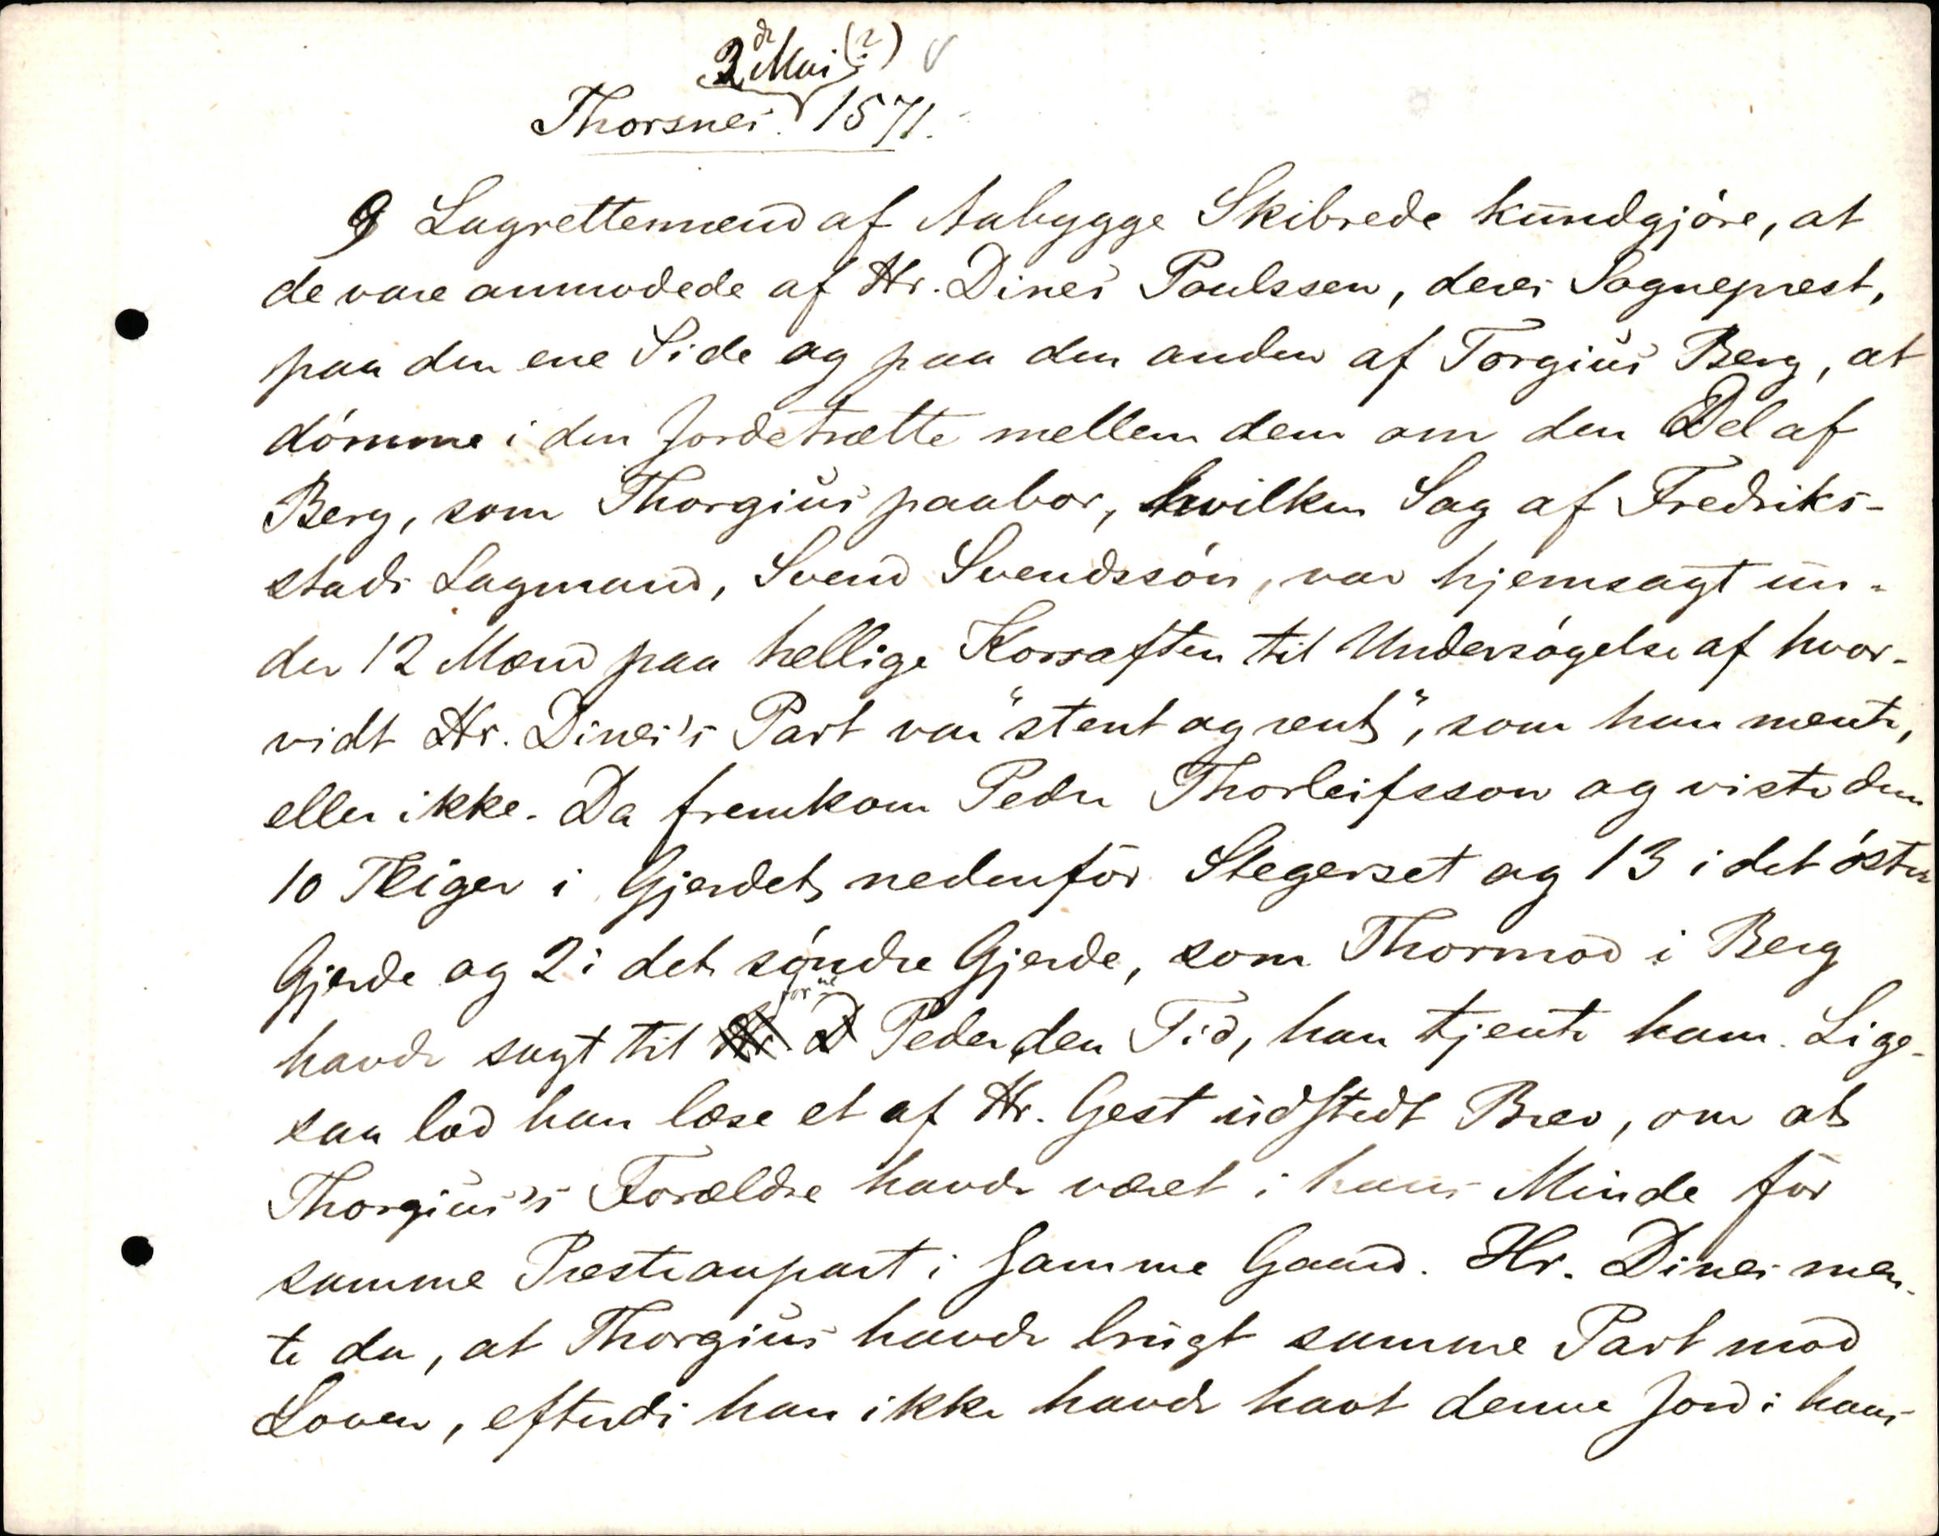 2 de Mai (?)
Thorsnes. 1571.
9 Lagrettemænd af Aabygge Skibrede kundgjøre, at
de vare anmodede af Hr. Dines Poulssen, deres Sogneprest,
paa den ene Side og paa den anden af Torgius Berg, at
dømme i den Jordetrætte mellem dem om den Del af
Berg, som Thorgius paabor, hvilken Sag af Fredriks-
stads Lagmand, Svend Svendssøn, var hjemsagt un-
der 12 Mænd paa hellige Korsaften til Undersøgelse af hvor-
vidt Hr. Dines's Part var "stent og rent", som han mente,
eller ikke. Da fremkom Peder Thorleifsson og viste dem
10 Teiger i Gjerdet nedenfor Stegerset og 13 i det østre
Gjerde og 2 i det søndre Gjerde, som Thormod i Berg
havde sagt til forne Peder, den Tid, han tjente ham. Lige-
saa lod han læse et af Hr. Gest udstedt Brev, om at
Thorgius's Forældre havde været i hans Minde for
samme Presteanpart i samme Gaard. Hr. Dines men-
te da, at Thorgius havde brugt samme Part mod
Loven, efterdi han ikke havde havt denne Jord i hans